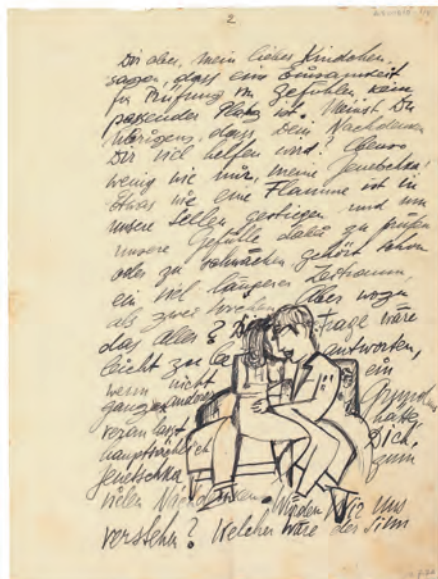 2
Dir aber, mein liebes Kindchen,
sagen, dass eine Einsamkeit
für Prüfung von Gefühlen kein
passender Platz ist. Meinst Du
übrigens, dass Dein Nachdenken
Dir viel helfen wird? Ebenso
wenig wie mir, meine Jenetschka!
Etwas wie eine Flamme ist in
unsere Sellen gestiegen und um
unsere Gefühle dabei zu prüfen
oder zu schwächen gehört schon
ein viel längerer Zeitraum,
als zwei Wochen. Aber wozu
das alles? Frage wäre
leicht zu antworten,
wenn nicht ein
ganz anderer Grund
veranlasst hätte
hauptsächlich Dich,
Jenetschka, zum
vielen Nachdenken. Würden Wir uns
verstehen? Welcher wäre der Sinn